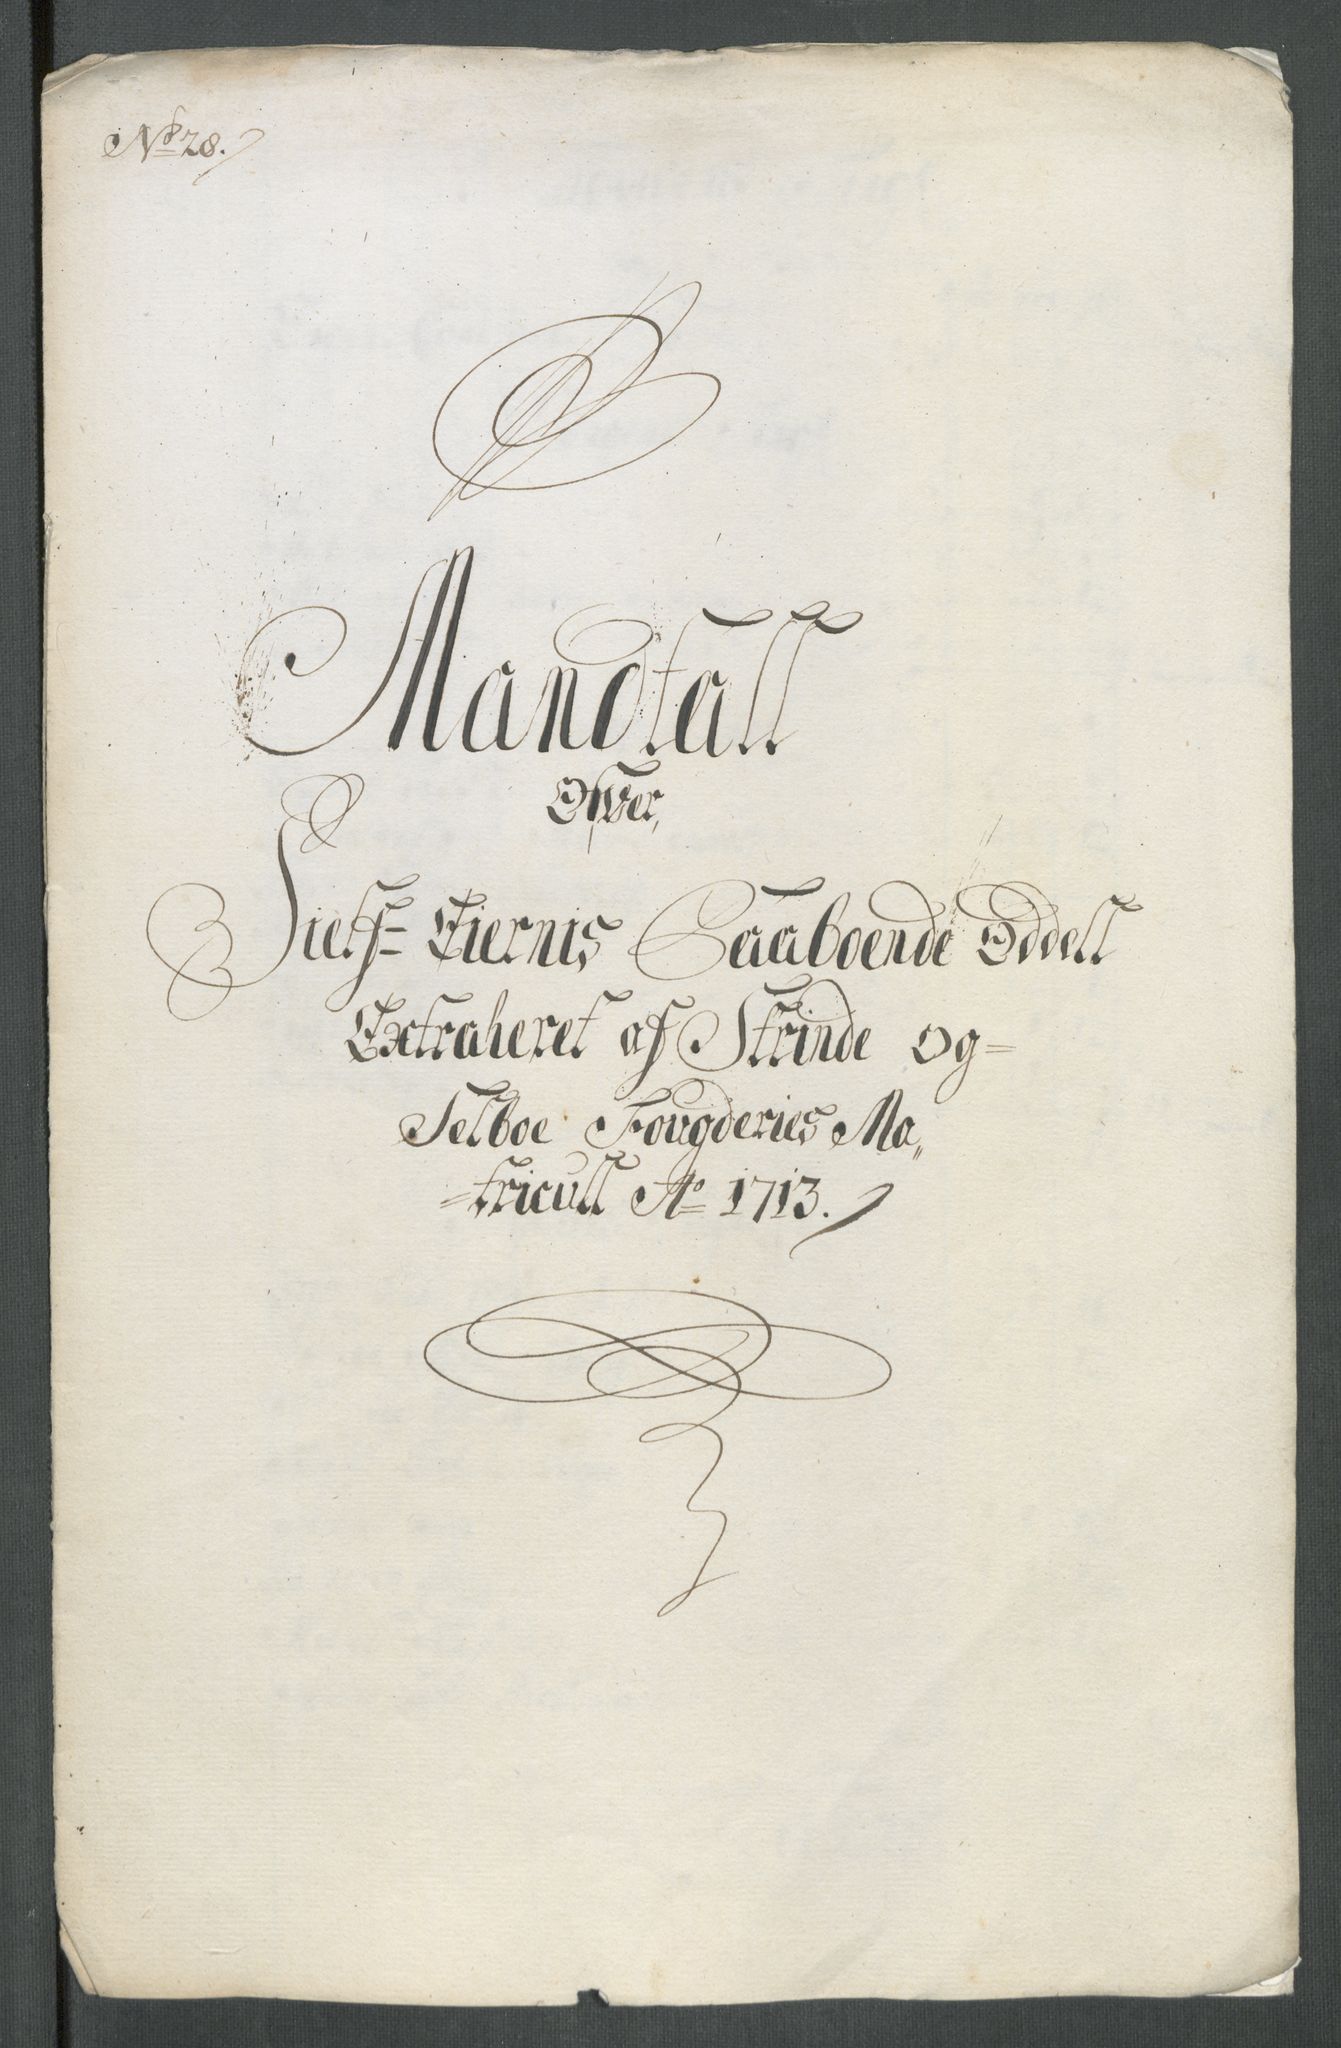 No 28.
Mandtall
Ofver,
Sielf= Eiernis Paaboende Oddell
Extraheret af Strinde og=
Selboe Fougderies Ma„
=tricull Ao 1713.